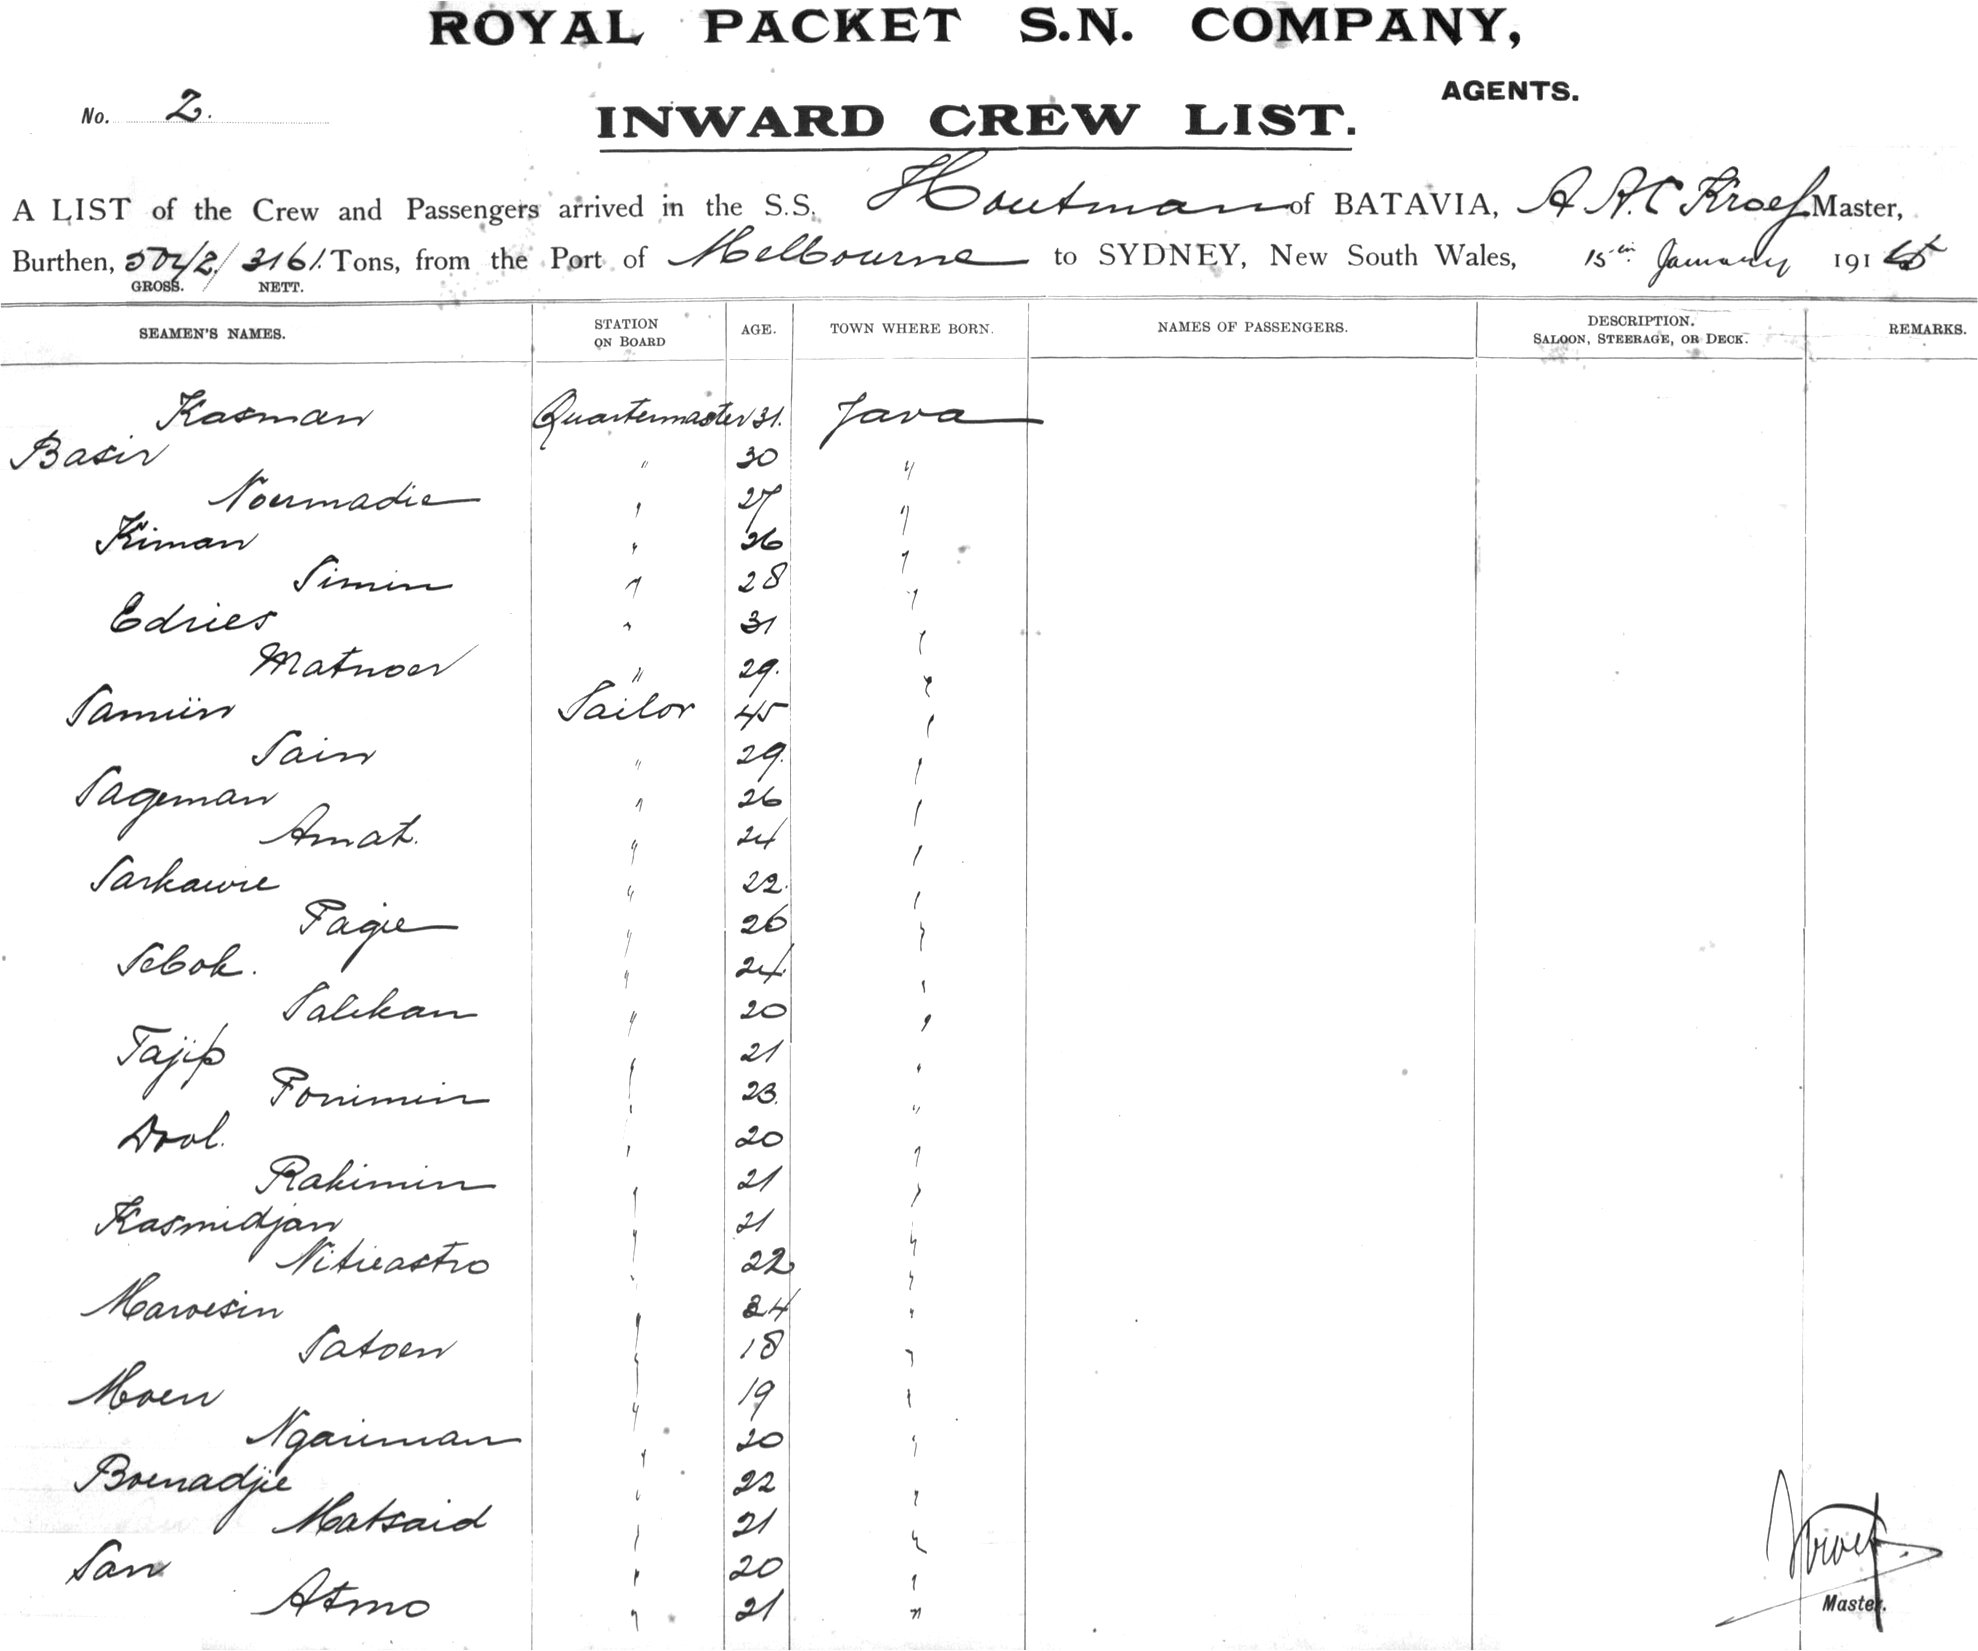 ROYAL PACKET S.N. COMPANY,
AGENTS.
No. 2.
INWARD CREW LIST.
A LIST of the Crew and Passengers arrived in the S.S. Houtman of BATAVIA, A A.C Kroef Master,
Burthen, / 3161. Tons, from the Port of Melbourne to SYDNEY, New South Wales, 15th January 191
GROSS. NETT.
SEAMEN'S NAMES. STATION ON BOARD AGE. TOWN WHERE BORN. NAMES OF PASSENGERS. DESCRIPTION. SALOON, STEERAGE, OR DECK. REMARKS.
Kasman Quartermaster 31. Java
Basir " 30 "
Noermadie " 27 "
Kiman " 26 "
Simin " 28 "
Edries " 31 "
Matnoer " 29. "
Samiin Sailor 45 "
Sain " 29. "
Sageman " 26 "
Amat. " 24 "
Sarkawie " 22. "
Pagie " 26 "
Sebok. " 24 "
Salikan " 20 "
Tajip " 21 "
Ponimin " 23. "
Dool. " 20 "
Rakimin " 21 "
Kasmidjan " 21 "
Nitieastro " 22 "
Maroesin " 24 "
Satoen " 18 "
Moen " 19 "
Ngariman " 20 "
Boenadjie " 22 "
Matsaid " 21 "
San " 20 "
Atmo " 21 "
Kroef.
Master.